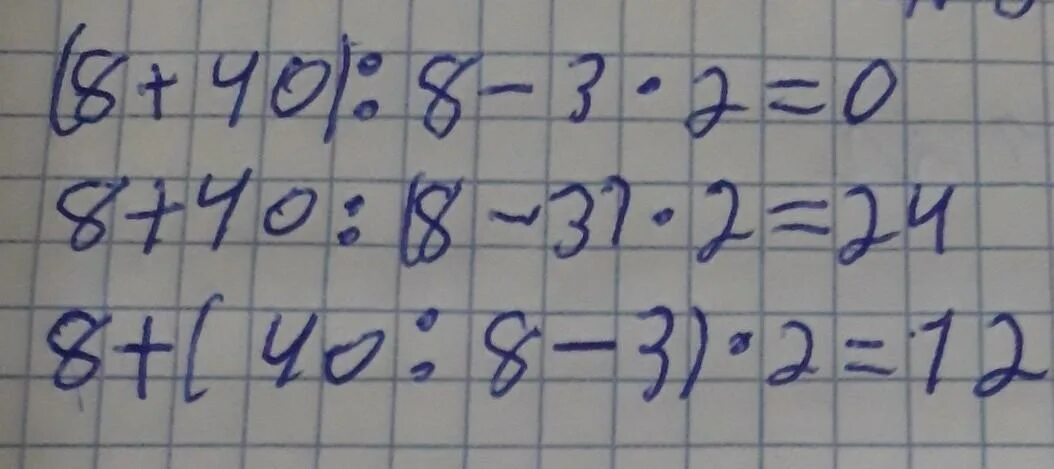 (8+40):8-3·2=0
8+40:(8-3)·2=24
8+(40:8-3)·2=12